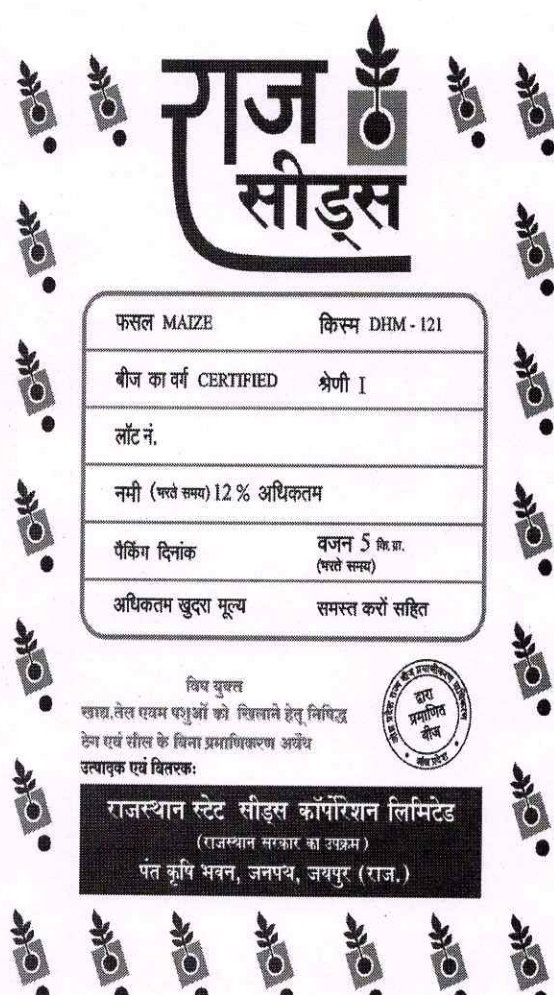 राज
सीड्स
फसल MAIZE किस्म DHM - 121
बीज का वर्ग CERTIFIED श्रेणी I
लॉट नं.
नमी (भरते समय) 12 % अधिकतम
पैकिंग दिनांक वजन 5 कि.ग्रा.
(भरते समय)
अधिकतम खुदरा मूल्य समस्त करों सहित
विष युक्त
खाद्य, तेल एवम पशुओं को खिलाने हेतू निषिद्ध
टेग एवं सील के बिना प्रमाणिकरण अवैध
उत्पादक एवं वितरकः
द्वारा
प्रमाणित
बीज
राजस्थान स्टेट सीड्स कॉर्पोरेशन लिमिटेड
(राजस्थान सरकार का उपक्रम)
पंत कृषि भवन, जनपथ, जयपुर (राज.)